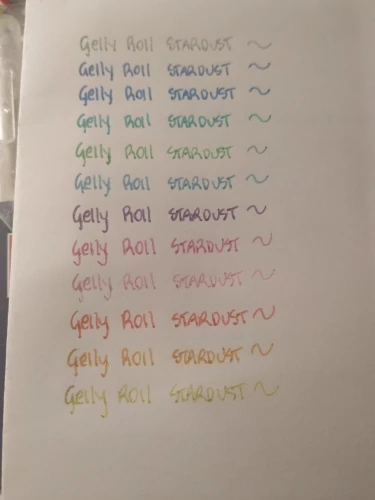 Gelly Roll STARDUST ~
Gelly Roll STARDUST ~
Gelly Roll STARDUST ~
Gelly Roll STARDUST ~
Gelly Roll STARDUST ~
Gelly Roll STARDUST ~
Gelly Roll STARDUST ~
Gelly Roll STARDUST ~
Gelly Roll STARDUST ~
Gelly Roll STARDUST ~
Gelly Roll STARDUST ~
Gelly Roll STARDUST ~